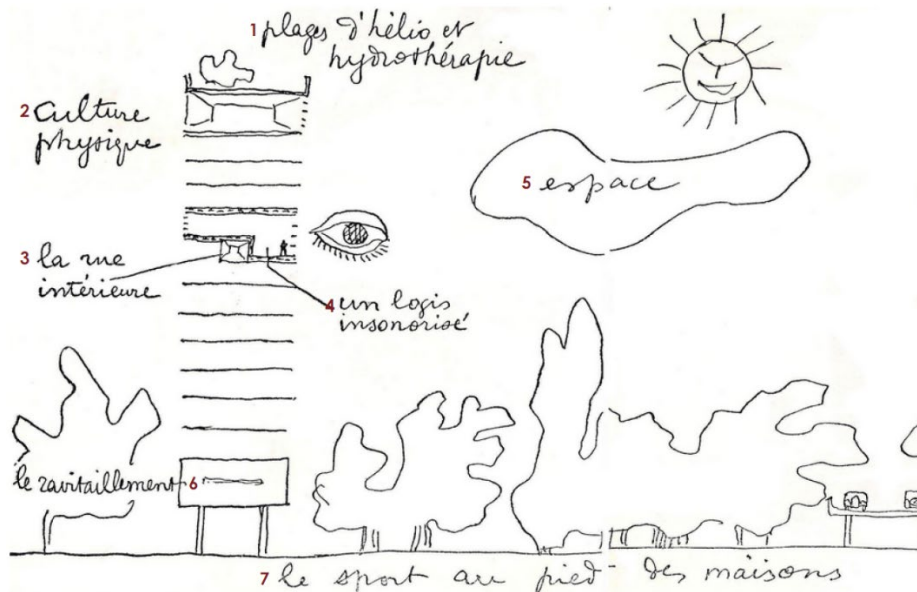 1 plages d'hélio et
hydrothérapie
2 culture
physique
5 espace
3 la rue
intérieure
4 un logis
insonorisé
le ravitaillement 6
7 le sport au pied des maisons